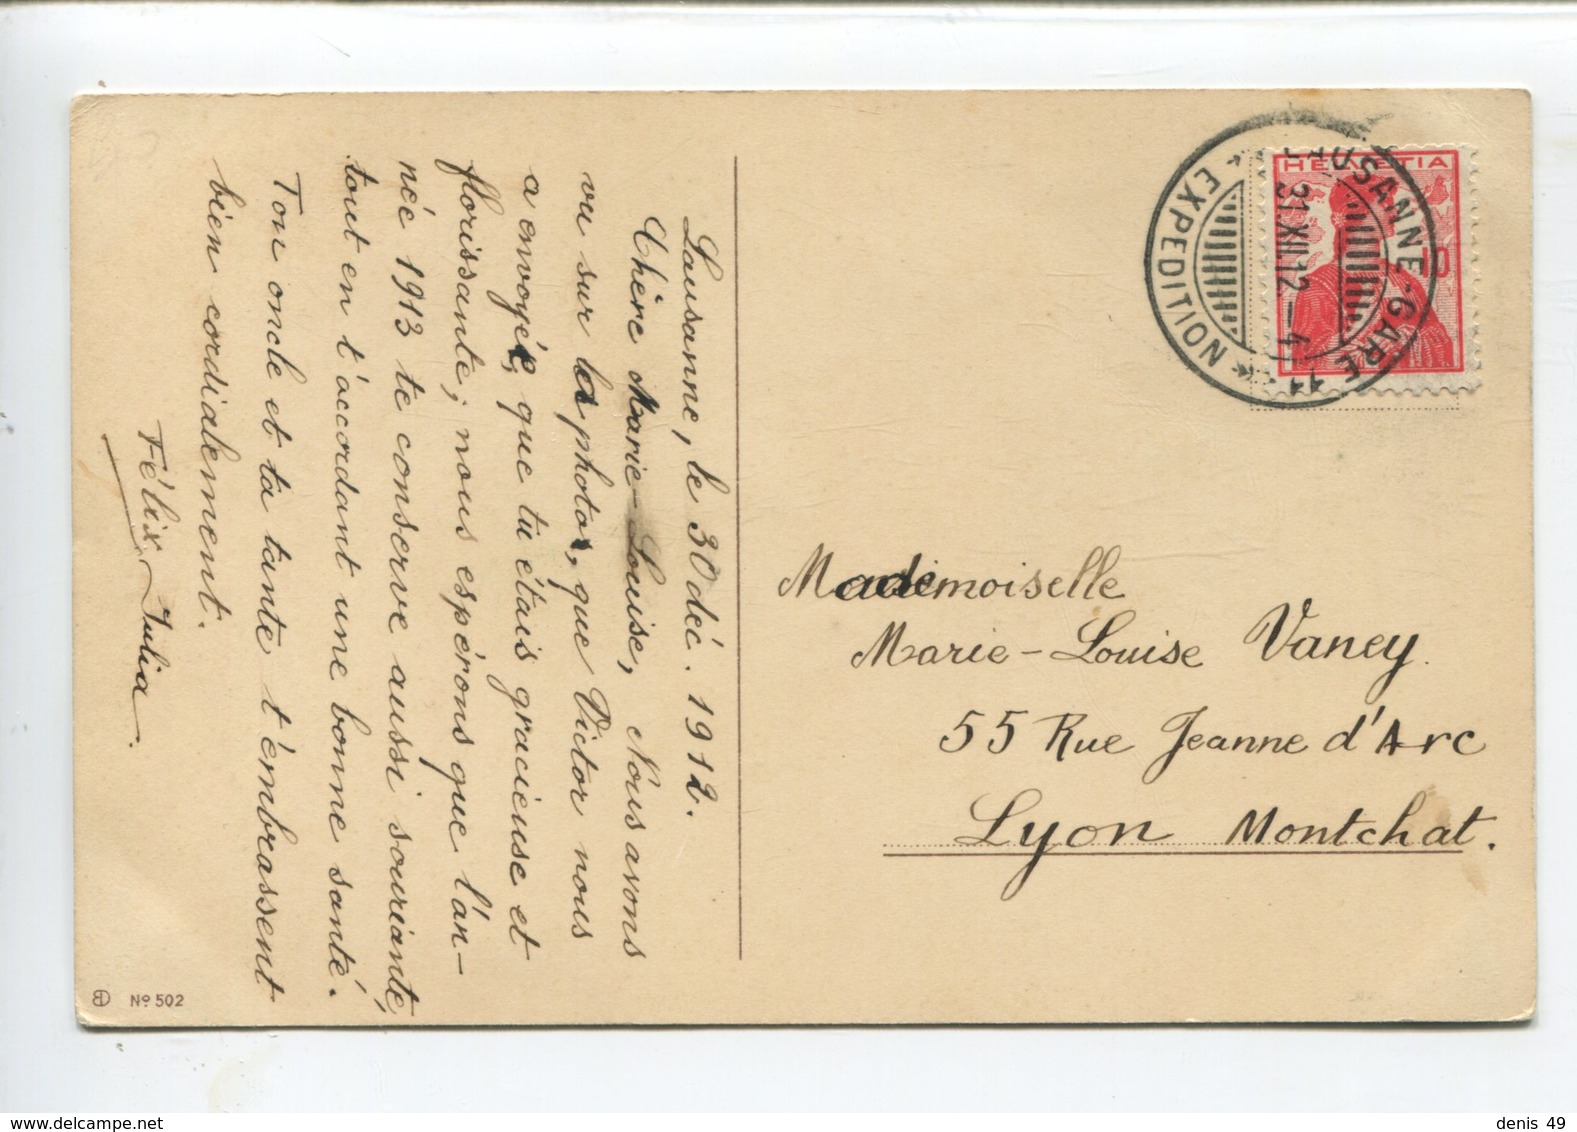 Lausanne, le 30 déc. 1912.
Chère Marie-Louise, Nous avons
vu sur la photo, que Victor nous
a envoyé, que tu étais gracieuse et
florissante; nous espérons que l'an-
née 1913 te conserve aussi souriante,
tout en t'accordant une bonne santé.
Ton oncle et ta tante t'embrassent
bien cordialement.
Félix, Julia.
Mademoiselle
Marie-Louise Vaney.
55 Rue Jeanne d'Arc
Lyon Montchat.
HELVETIA
10
LAUSANNE-GARE
31.XII.12.-4
11
EXPEDITION
No 502
denis 49